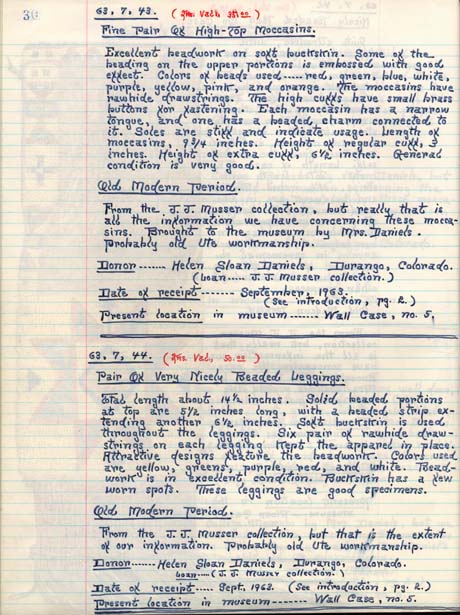 30
63. 7. 43. (Ins. Val., 75.00)
Fine Pair Of High-Top Moccasins.
Excellent beadwork on soft buckskin. Some of the
beading on the upper portions is embossed with good
effect. Colors of beads used.....red, green, blue, white,
purple, yellow, pink, and orange. The moccasins have
rawhide drawstrings. The high cuffs have small brass
buttons for fastening. Each moccasin has a narrow
tongue, and one has a beaded, charm connected to
it. Soles are stiff and indicate usage. Length of
moccasins, 9 3/4 inches. Height of regular cuff, 3
inches. Height of extra cuff, 6 1/2 inches. General
condition is very good.
Old Modern Period.
From the J.J. Musser collection, but really that is
all the information we have concerning these mocca-
sins. Brought to the museum by Mrs. Daniels.
Probably old Ute workmanship.
Donor....... Helen Sloan Daniels, Durango, Colorado.
(loan..... J.J. Musser collection.)
Date of receipt....... September, 1963.
(See introduction, pg. 2.)
Present location in museum....... Wall Case, no. 5.
63. 7. 44. (Ins. Val., 50.00)
Pair Of Very Nicely Beaded Leggings.
Total length about 14 1/2 inches. Solid beaded portions
at top are 5 1/2 inches long, with a beaded strip ex-
tending another 6 1/2 inches. Soft buckskin is used
throughout the leggings. Six pair of rawhide draw-
strings on each legging kept the apparel in place.
Attractive designs feature the beadwork. Colors used
are yellow, greens, purple, red, and white. Bead-
work is in excellent condition. Buckskin has a few
worn spots. These leggings are good specimens.
Old Modern Period.
From the J.J. Musser collection, but that is the extent
of our information. Probably old Ute workmanship.
Donor...... Helen Sloan Daniels, Durango, Colorado.
loan.... (J.J. Musser collection.)
Date of receipt..... Sept. 1963. (See introduction, pg. 2.)
Present location in museum...... Wall Case, no. 5.